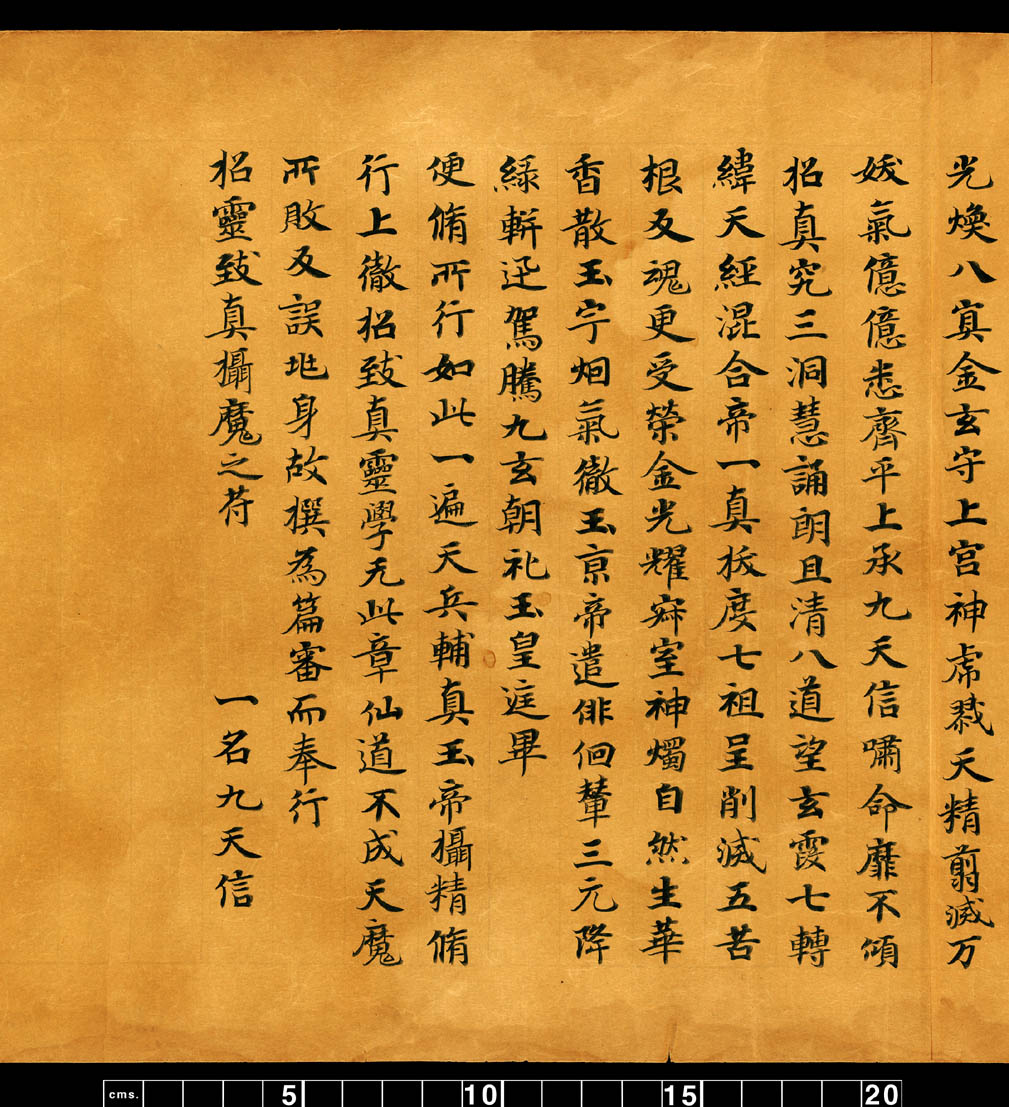 光煥八寘金玄守上宮神虎戮天精翦滅万
妭氣億億悉齊平上承九天信嘯命靡不傾
招真究三洞慧誦朗且清八道望玄霞七轉
緯天經混合帝一真拔度七祖呈削滅五苦
根反魂更受榮金光耀寐室神燭自然生華
香散玉宇烟氣徹玉京帝遣俳佪輦三元降
綠軿迅駕騰九玄朝礼玉皇庭畢
便脩所行如此一遍天兵輔真玉帝攝精脩
行上徹招致真靈學无此章仙道不成天魔
所敗反誤兆身故撰為篇審而奉行
招靈致真攝魔之苻 一名九天信
cms. 5 10 15 20